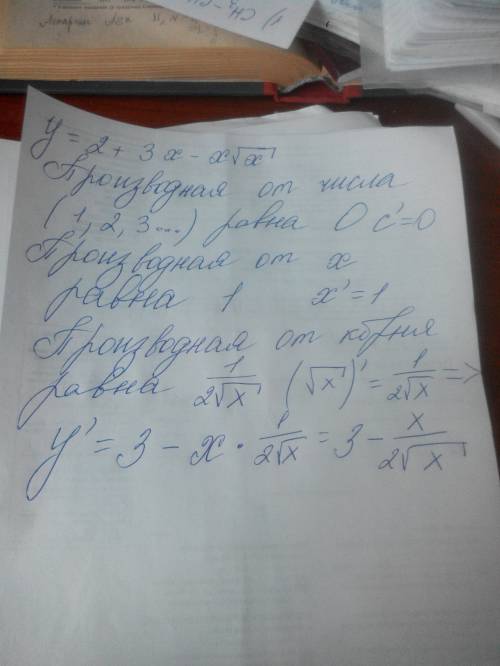 y = 2 + 3x - x√x
Производная от числа
(1, 2, 3...) равна 0 c'=0
Производная от x
равна 1 x'=1
Производная от корня
равна 1/(2√x) (√x)' = 1/(2√x) =>
y' = 3 - x · 1/(2√x) = 3 - x/(2√x)